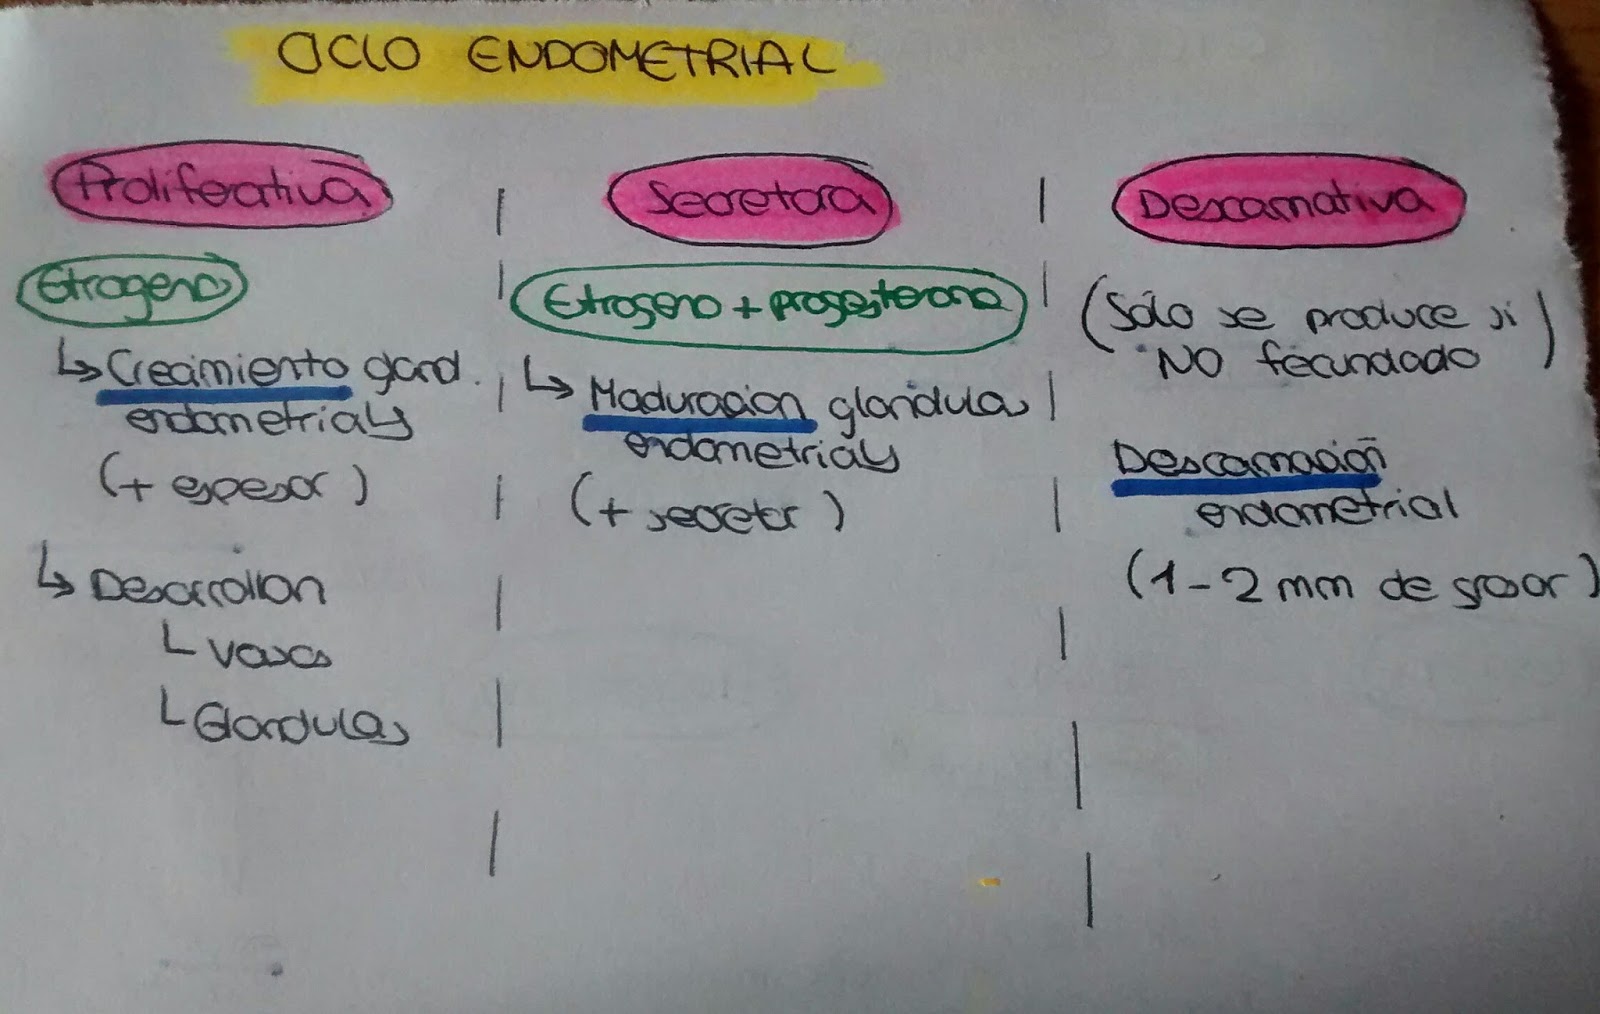 CICLO ENDOMETRIAL
Proliferativa
Etrogeno
↳ Crecimiento gland.
endometrials
(+ espesor)
↳ Desarrollan
└ vasos
└ Glandulas
Secretora
Etrogeno + progesterona
↳ Maduracion glandulas
endometrials
(+ secretr)
Descamativa
(Sólo se produce si
NO fecundado)
Descamación
endometrial
(1-2 mm de grosor)